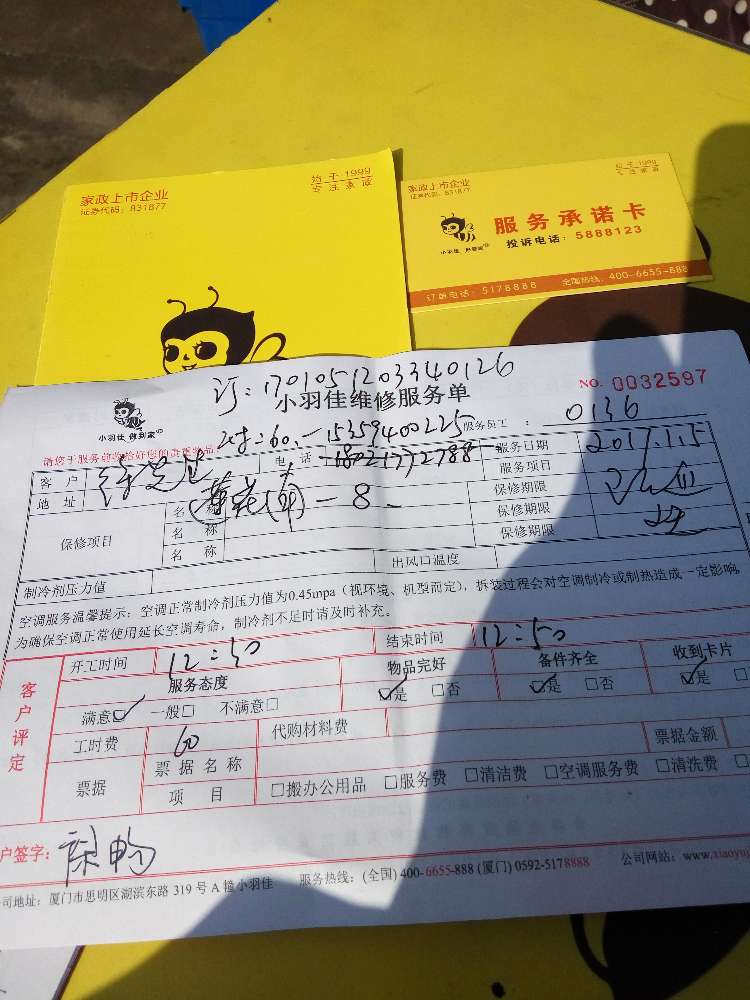 家政上市企业
证券代码：831877
始于1999
专注家政
家政上市企业
证券代码：831877
始于1999
专注家政
服务承诺卡
投诉电话：5888123
小羽佳 做到家
订单电话：5178888 全国热线：400-6655-888
订：1701051203340126
小羽佳维修服务单
NO. 0032597
小羽佳 做到家
60.-15359400225
服务员工： 0136
请您于服务前
客户
电话 18021772788
服务日期 2017.1.5
地址 莲花 -8-
服务项目
保修项目
名称
保修期限
名称
保修期限
名称
保修期限
制冷剂压力值
出风口温度
空调服务温馨提示：空调正常制冷剂压力值为0.45mpa（视环境、机型而定），拆装过程会对空调制冷或制热造成一定影响，
为确保空调正常使用延长空调寿命，制冷剂不足时请及时补充。
客户评定
开工时间 12:50
结束时间 12:50
服务态度
物品完好
备件齐全
收到卡片
满意☑ 一般□ 不满意□
☑是 □否
☑是 □否
☑是 □
工时费 60
代购材料费
票据金额
票据
票据名称
项目
□搬办公用品 □服务费 □清洁费 □空调服务费 □清洗费
户签字：
司地址：厦门市思明区湖滨东路319号A幢小羽佳 服务热线：(全国) 400-6655-888 (厦门) 0592-5178888 公司网站：www.xiaoyu